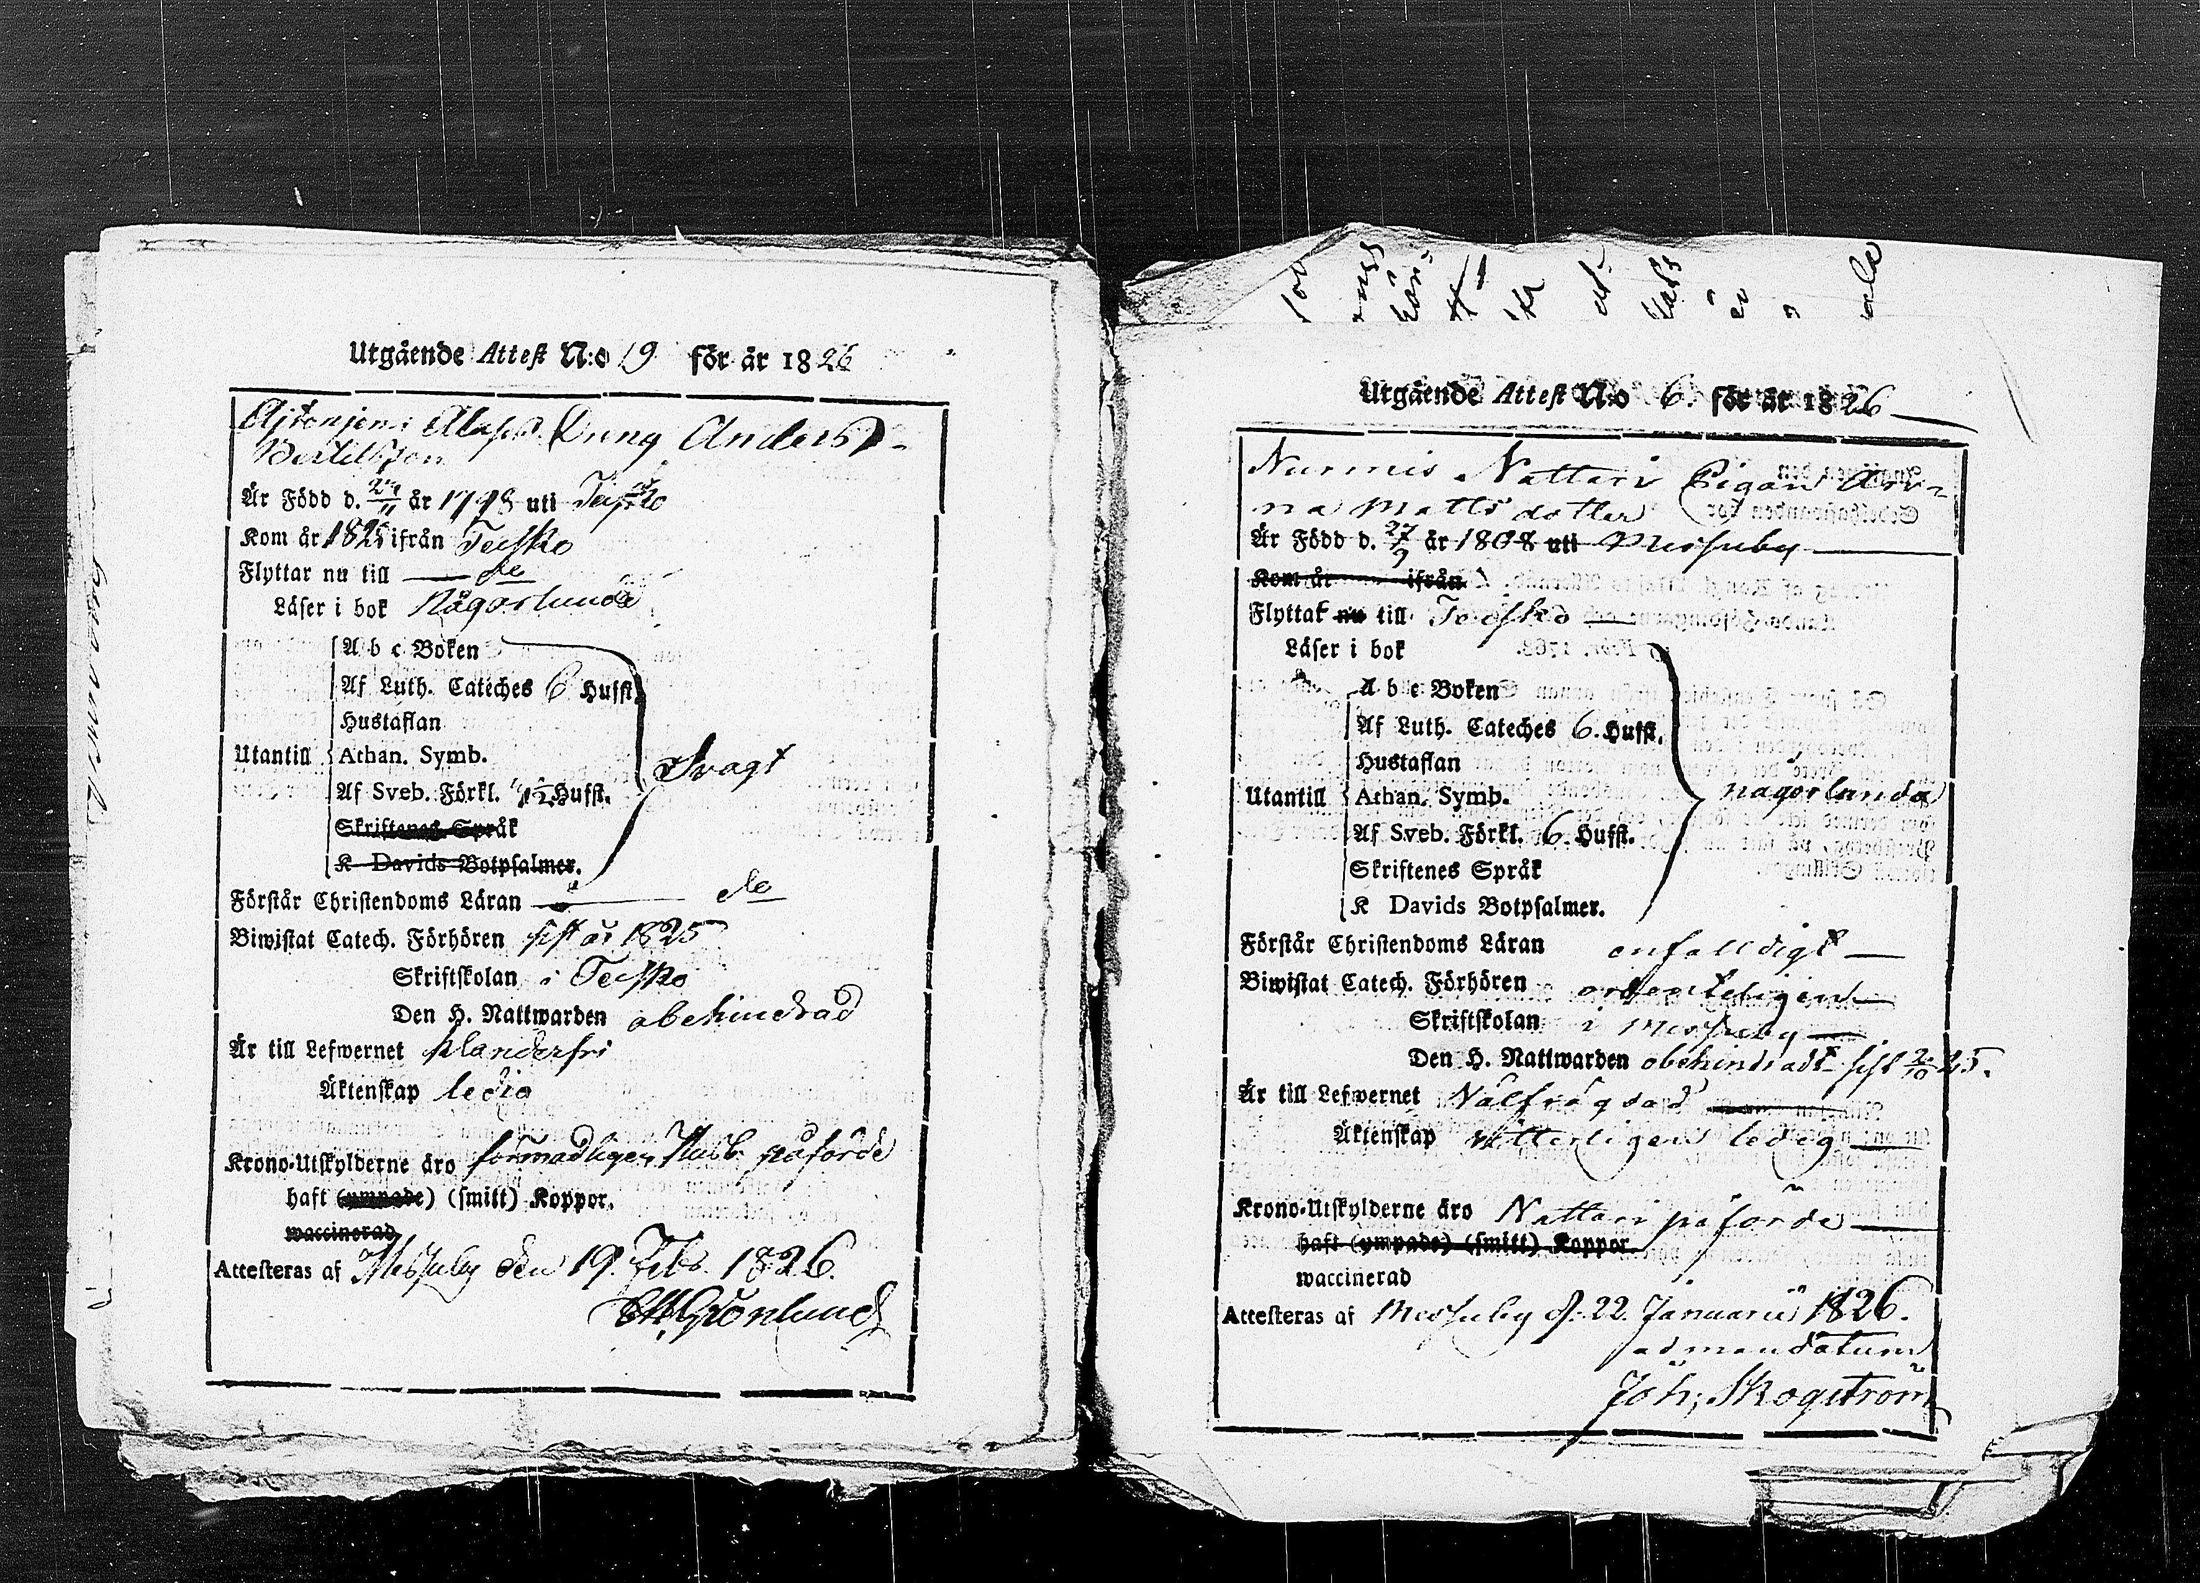 Utgående Attest N:o 19 för år 1826
Dräng Anders
Bertilsson
Är Född d. 24/11 år 1798 uti Teisko
Kom år 1825 ifrån Teisko
Flyttar nu till do
Läser i bok någorlunda
A b c Boken
Af Luth. Cateches 6 Hufst.
Hustaflan
Utantill Athan. Symb.
Af Sveb. Förkl. 1 1/2 Hufst.
Svagt
Skriftenes Språk
K Davids Botpsalmer.
Förstår Christendoms Läran do
Biwistat Catech. Förhören sist år 1825
Skriftskolan i Teisko
Den H. Nattwarden obehindrad
Är till Lefwernet klanderfri
Äktenskap ledig
Krono-Utskylderne äro påförde
haft (ympade) (smitt) Koppor.
waccinerad
Attesteras af Messuby den 19. Febr. 1826.
Grönlund
Utgående Attest N:o 6. för år 1826
Nurmis Nattari Pigan An-
na Matts dotter
Är Född d. 27/9 år 1808 uti Messuby
Kom år ifrån
Flyttat nu till Teisko
Läser i bok
A b c Boken
Af Luth. Cateches 6. Hufst.
Hustaflan
Utantill Athan. Symb.
någorlunda
Af Sveb. Förkl. 6. Hufst.
Skriftenes Språk
K Davids Botpsalmer.
Förstår Christendoms Läran enfalldigt
Biwistat Catech. Förhören ordenteligen
Skriftskolan i Messuby
Den H. Nattwarden obehindradt sist 2/10 25.
Är till Lefwernet Välfrägdad
Äktenskap vitterligen ledig
Krono-Utskylderne äro Nattari påförde
haft (ympade) (smitt) Koppor.
waccinerad
Attesteras af Messuby d. 22. Januarii 1826.
ad mandatum
Joh. Skogström